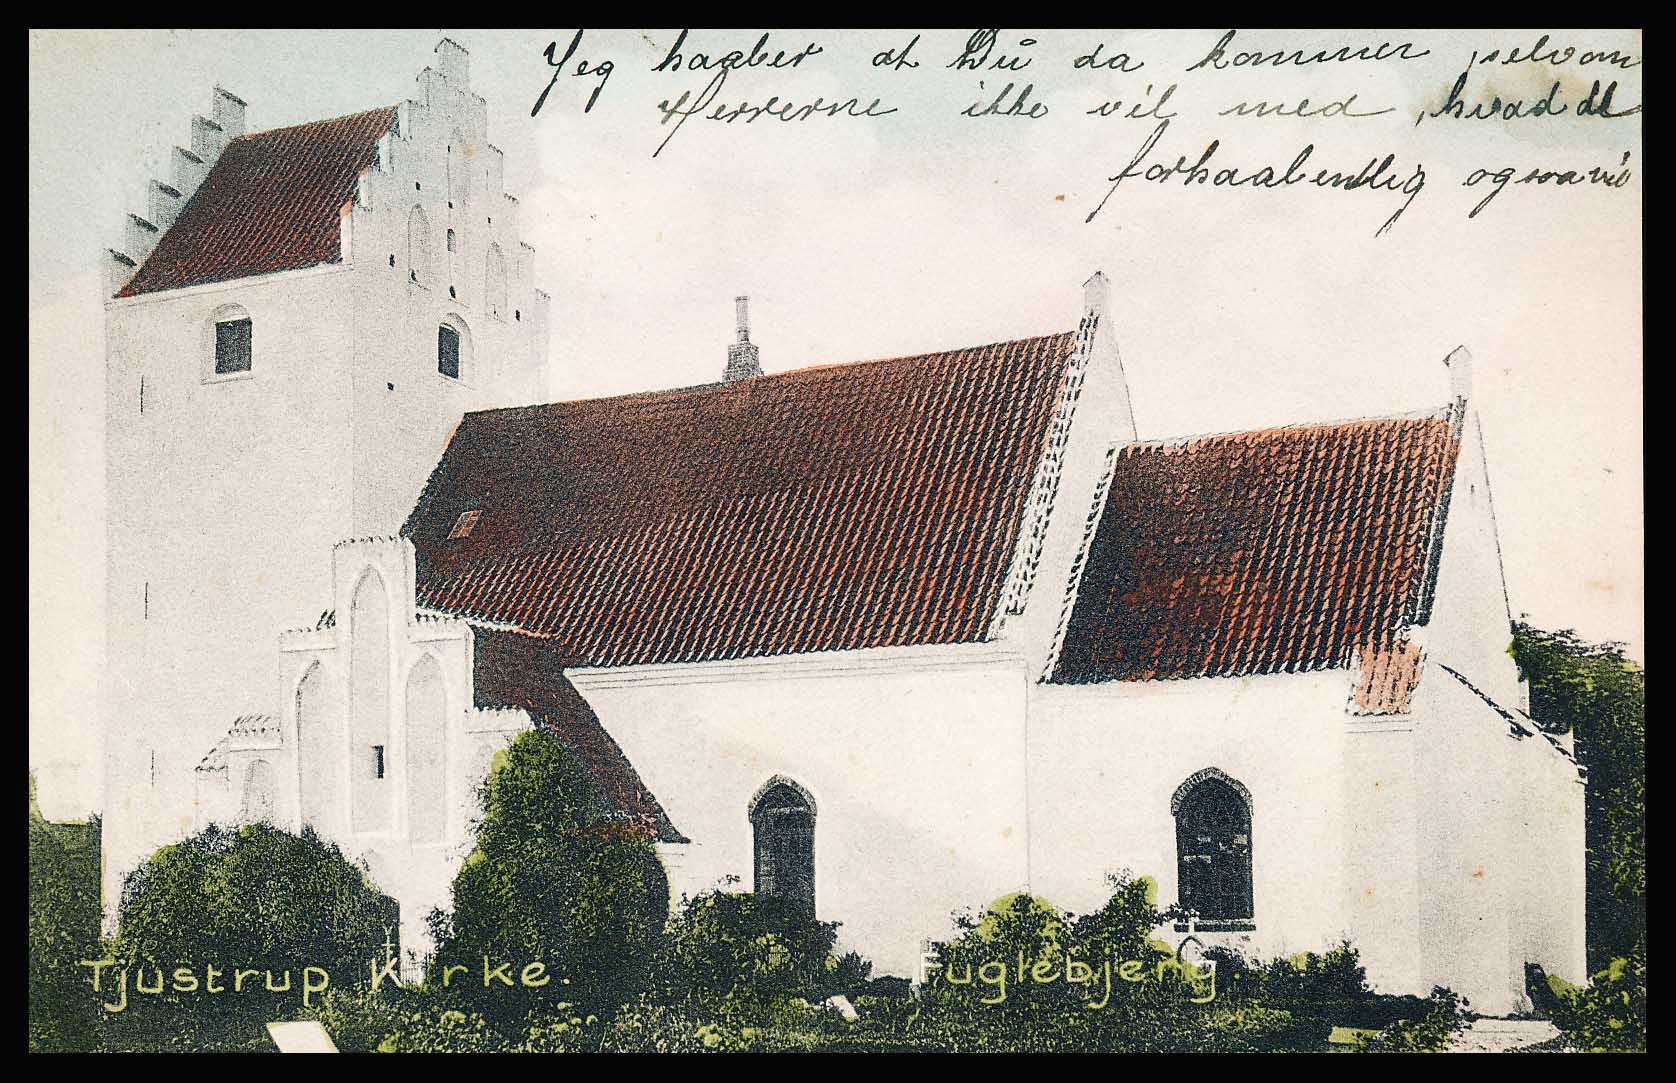 Jeg haaber at Du da kommer, selvom
Herrerne ikke vil med, hvad de
forhaabentlig ogsaa vil
Tjustrup Kirke. Fuglebjerg.